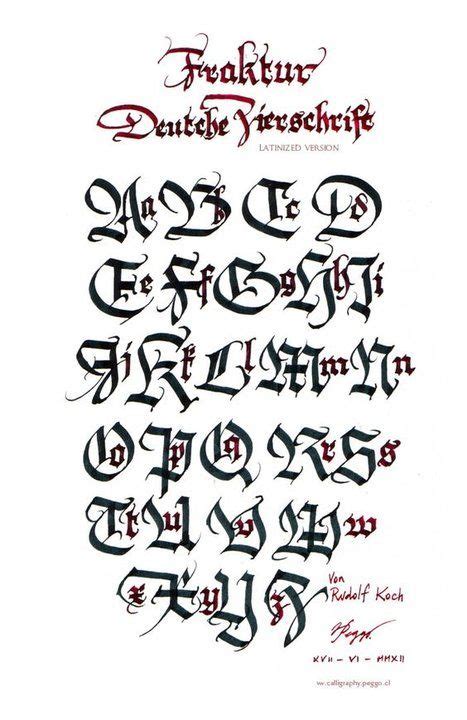 Fraktur
Deutche Zierschrift
LATINIZED VERSION
Aa Bb Cc Dd
Ee Ff Gg Hh Ii
Jj Kk Ll Mm Nn
Oo Pp Qq Rr Ss
Tt Uu Vv Ww
Xx Yy Zz
Von
Rudolf Koch
Peggo.
XVII - VI - MMXII
w.calligraphy.peggo.cl